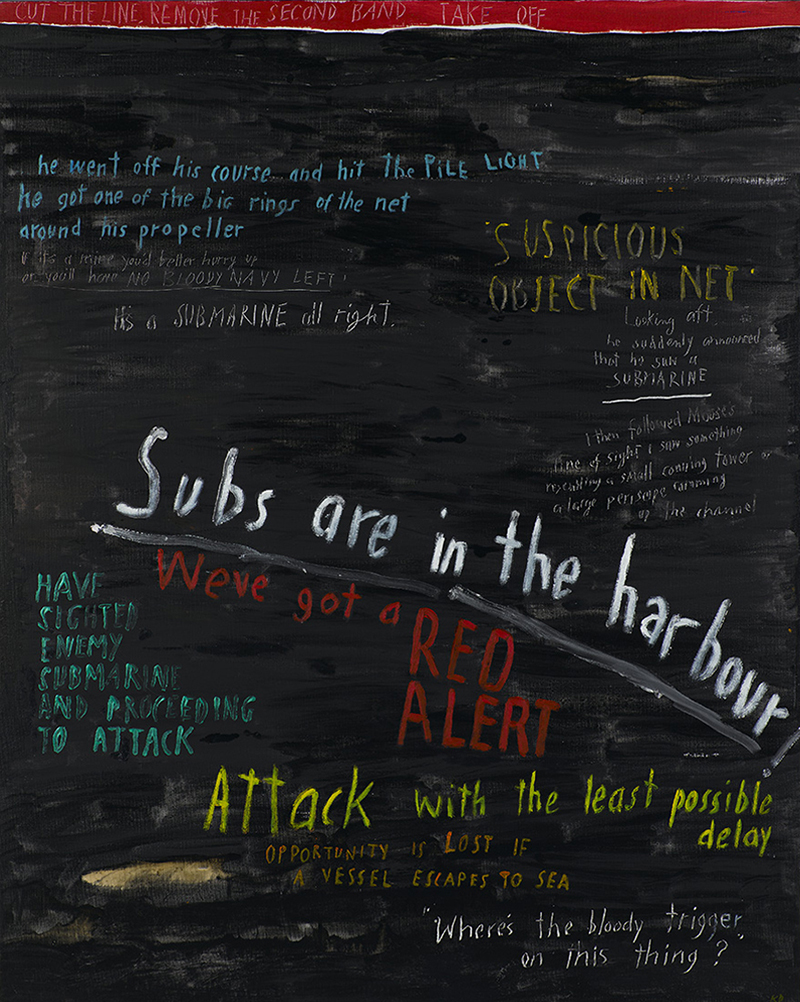 CUT THE LINE, REMOVE THE SECOND BAND TAKE OFF
he went off his course and hit the PILE LIGHT
he got one of the big rings of the net
around his propeller
if it's a mine you'd better hurry up
or you'll have NO BLOODY NAVY LEFT'
It's a SUBMARINE all right.
'SUSPICIOUS
OBJECT IN NET'
Looking aft.
he suddenly announced
that he saw a
SUBMARINE
I then followed Mouses
line of sight I saw something
resembling a small conning tower or
a large periscope coming
up the channel
Subs are in the harbour!
We've got a
RED
ALERT
HAVE
SIGHTED
ENEMY
SUBMARINE
AND PROCEEDING
TO ATTACK
Attack with the least possible
delay
OPPORTUNITY IS LOST IF
A VESSEL ESCAPES TO SEA
"Where's the bloody trigger
on this thing?